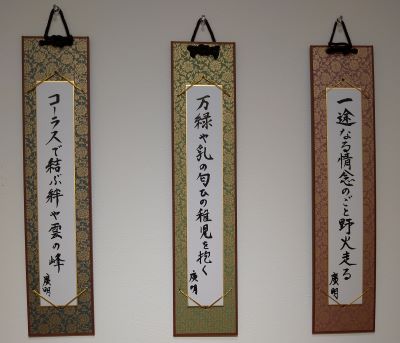 一途なる情念のごと野火走る
廣明
万緑や乳の匂ひの稚児を抱く
廣明
コーラスで結ぶ絆や雲の峰
廣明